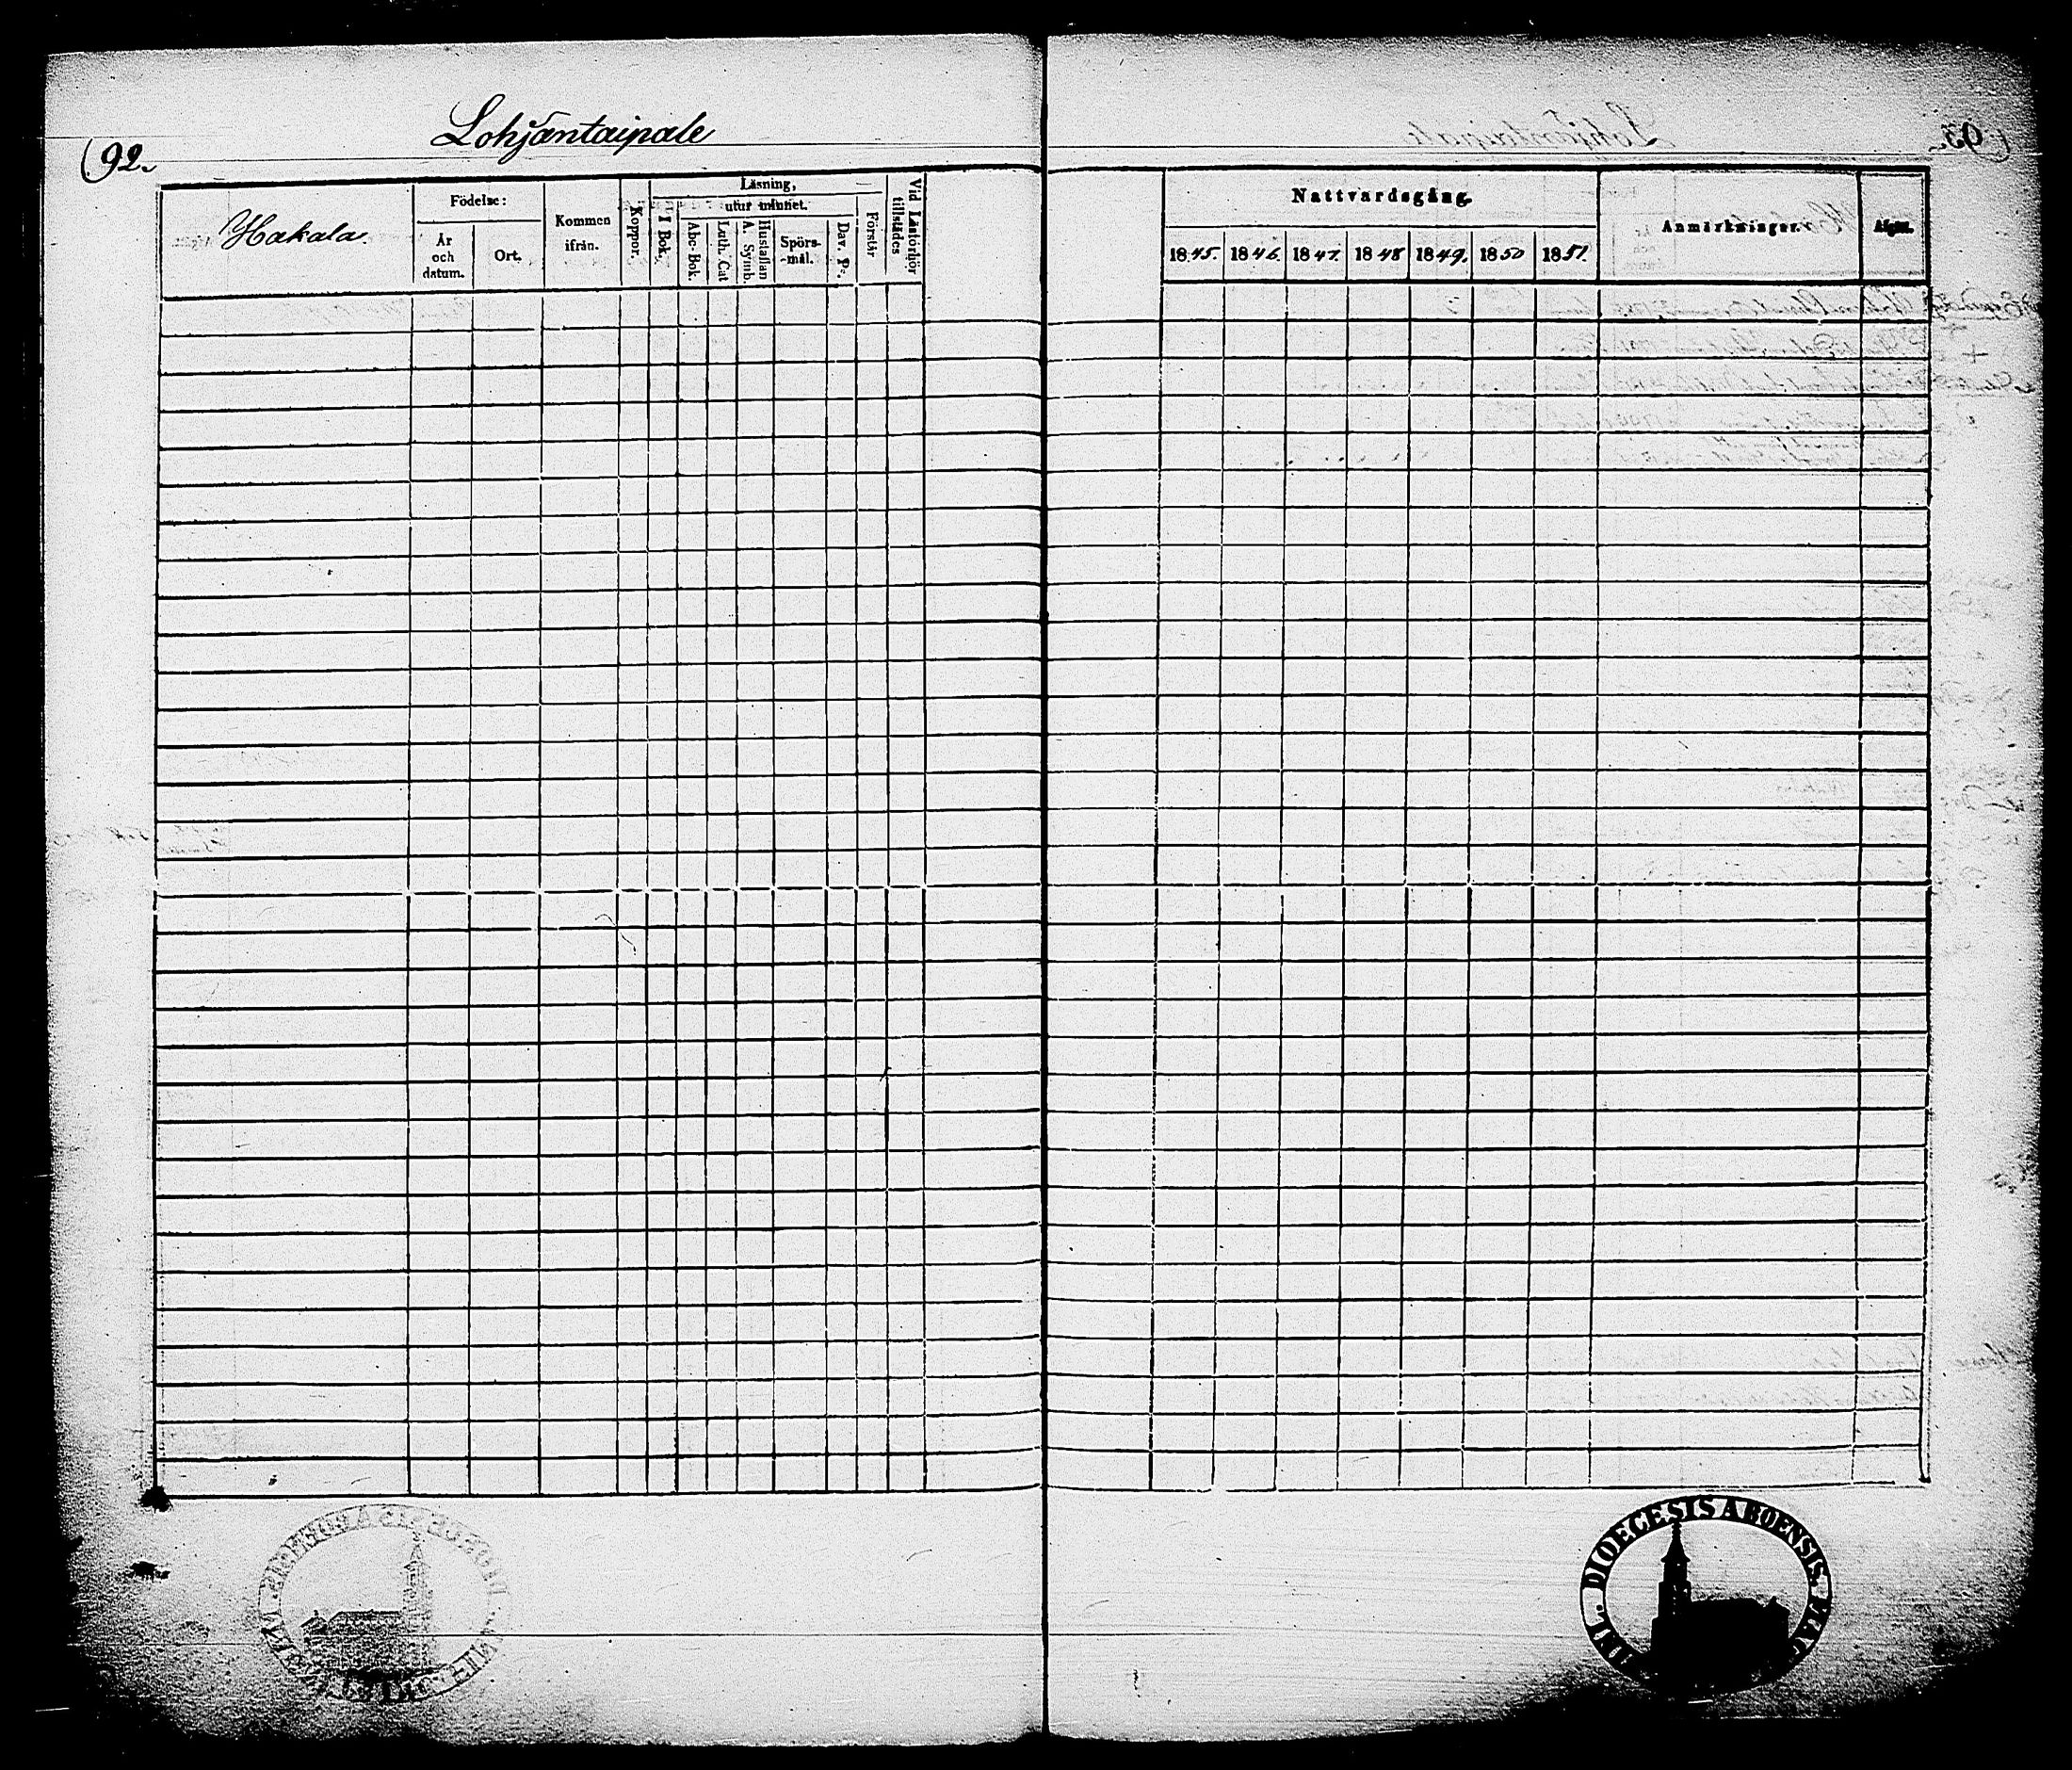 92.
Lohjäntaipale
Hakala.
Födelse:
År och datum.
Ort.
Kommen ifrån.
Koppor.
Läsning,
I Bok.
utur minnet.
Abc-Bok.
Luth. Cat
Hustaflan
A. Symb.
Spörs-mål.
Dav. Ps.
Förstår
Vid Läsförhör tillstädes
Nattvardsgång.
1845. 1846. 1847. 1848 1849. 1850 1851.
Anmärkningar.
Afgått.
DIOECESIS ABOENSIS.